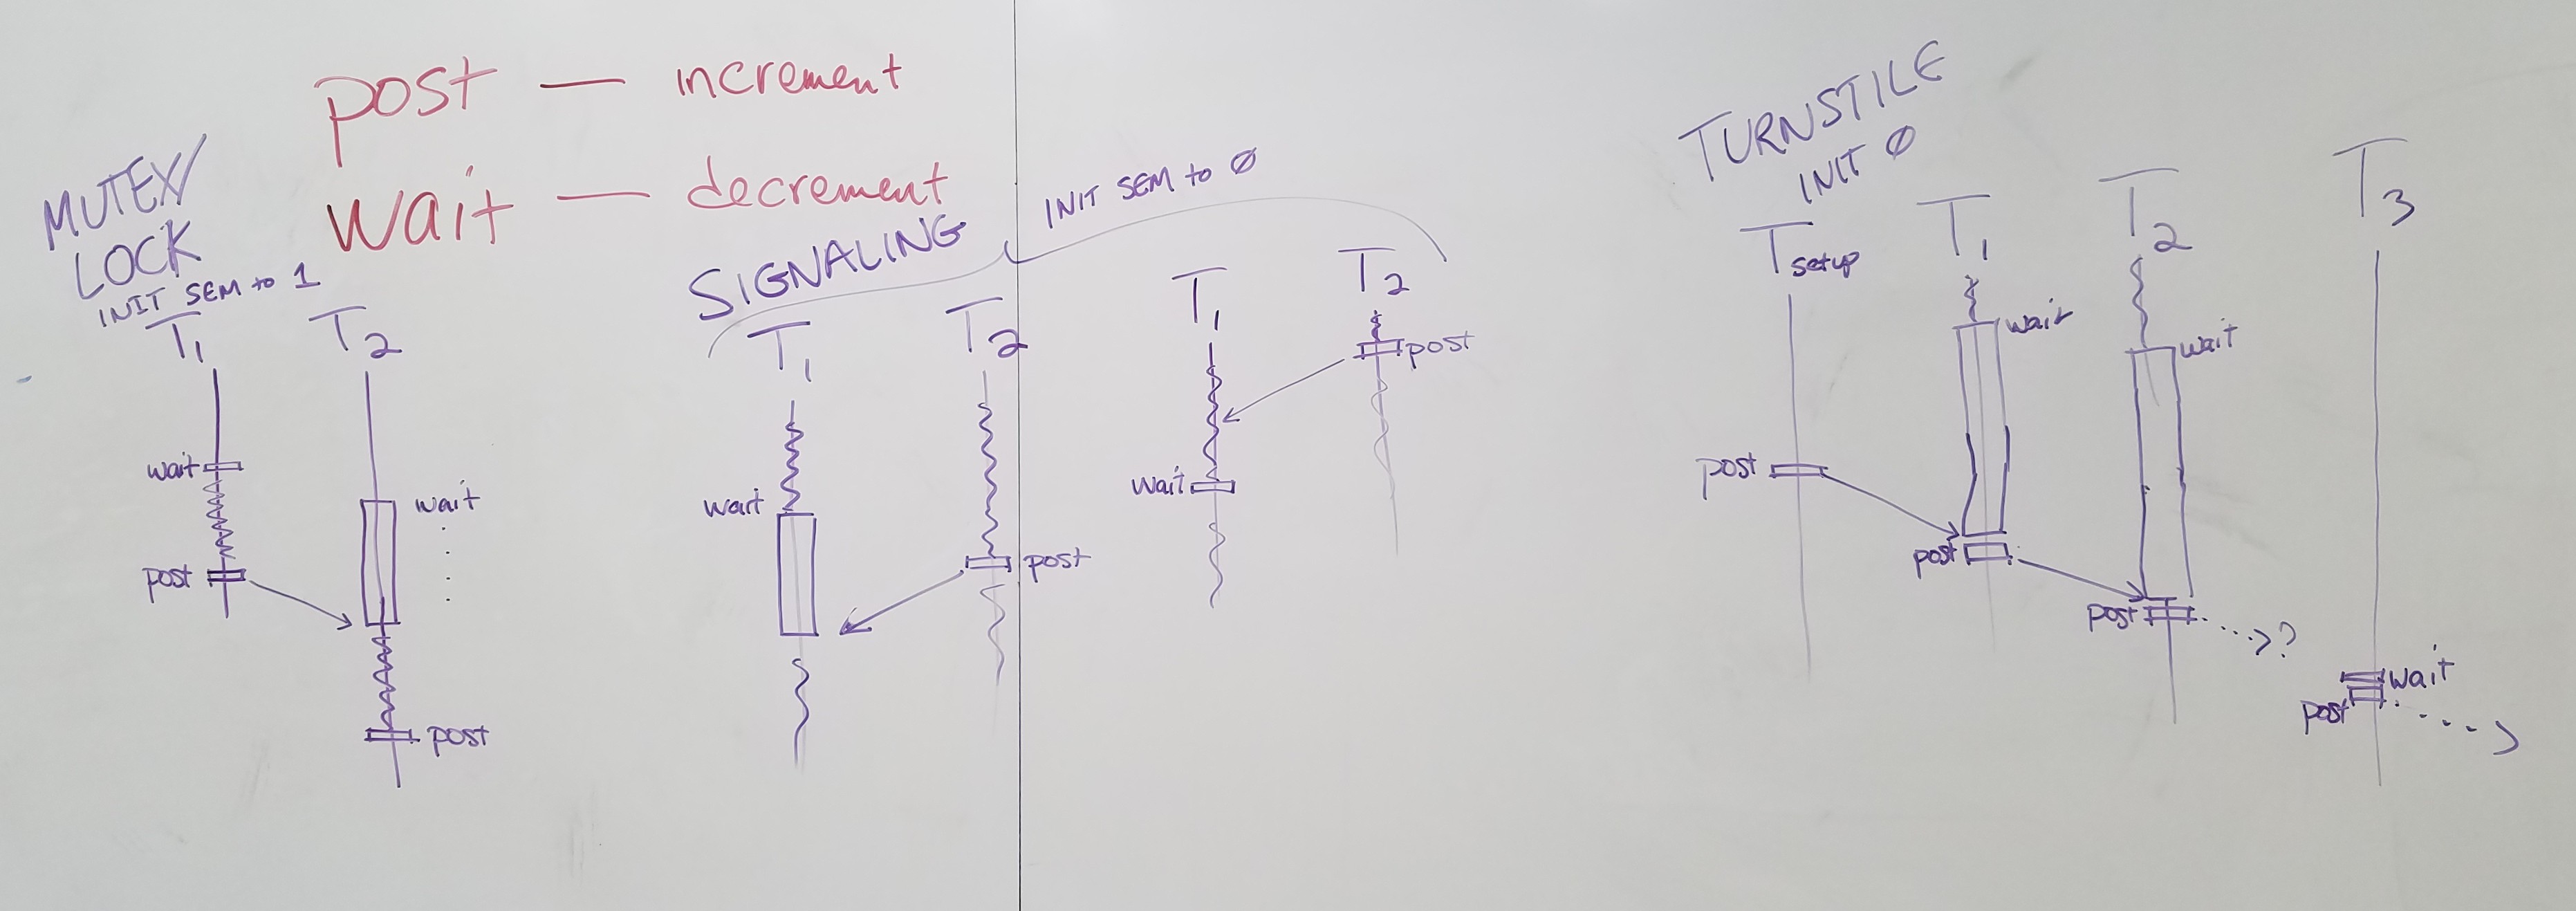 post — increment
wait — decrement
MUTEX/
LOCK
INIT SEM to 1
T1
T2
wait
post
wait
post
SIGNALING
INIT SEM to Ø
T1
T2
wait
post
T1
T2
post
wait
TURNSTILE
INIT Ø
Tsetup
T1
T2
T3
post
wait
post
wait
post
?
wait
post